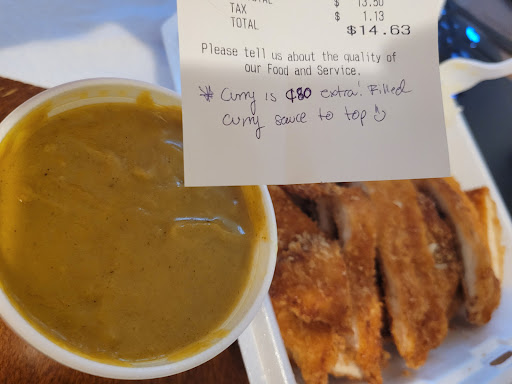 $ 13.50
TAX $ 1.13
TOTAL $14.63
Please tell us about the quality of
our Food and Service.
* Curry is ¢80 extra! Filled
curry sauce to top